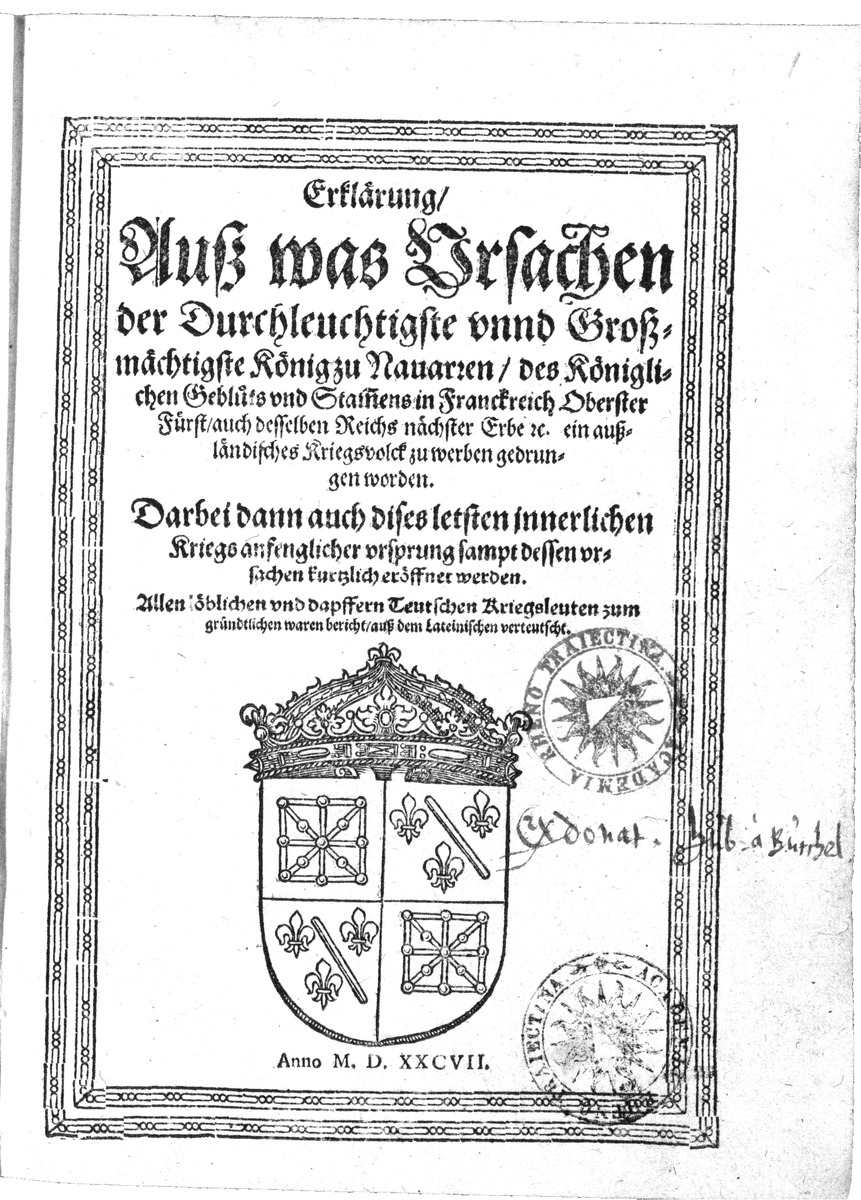 Erklärung/
Auß was Vrsachen
der Durchleuchtigste vnnd Groß-
mächtigste König zu Nauarren/ des Königli-
chen Geblüts vnd Stam̃ens in Franckreich Oberster
Fürst/auch desselben Reichs nächster Erbe ꝛc. ein auß-
ländisches Kriegsvolck zu werben gedrun-
gen worden.
Darbei dann auch dises letsten jnnerlichen
Kriegs anfenglicher vrsprung sampt dessen vr-
sachen kurtzlich eröffnet werden.
Allen löblichen vnd dapffern Teutschen Kriegsleuten zum
gründtlichen waren bericht/auß dem Lateinischen verteutscht.
ACADEMIA RHENO TRAIECTINA
Ex donat. Hub. à Buchel
Anno M. D. XXCVII.
ACADEMIA RHENO TRAIECTINA